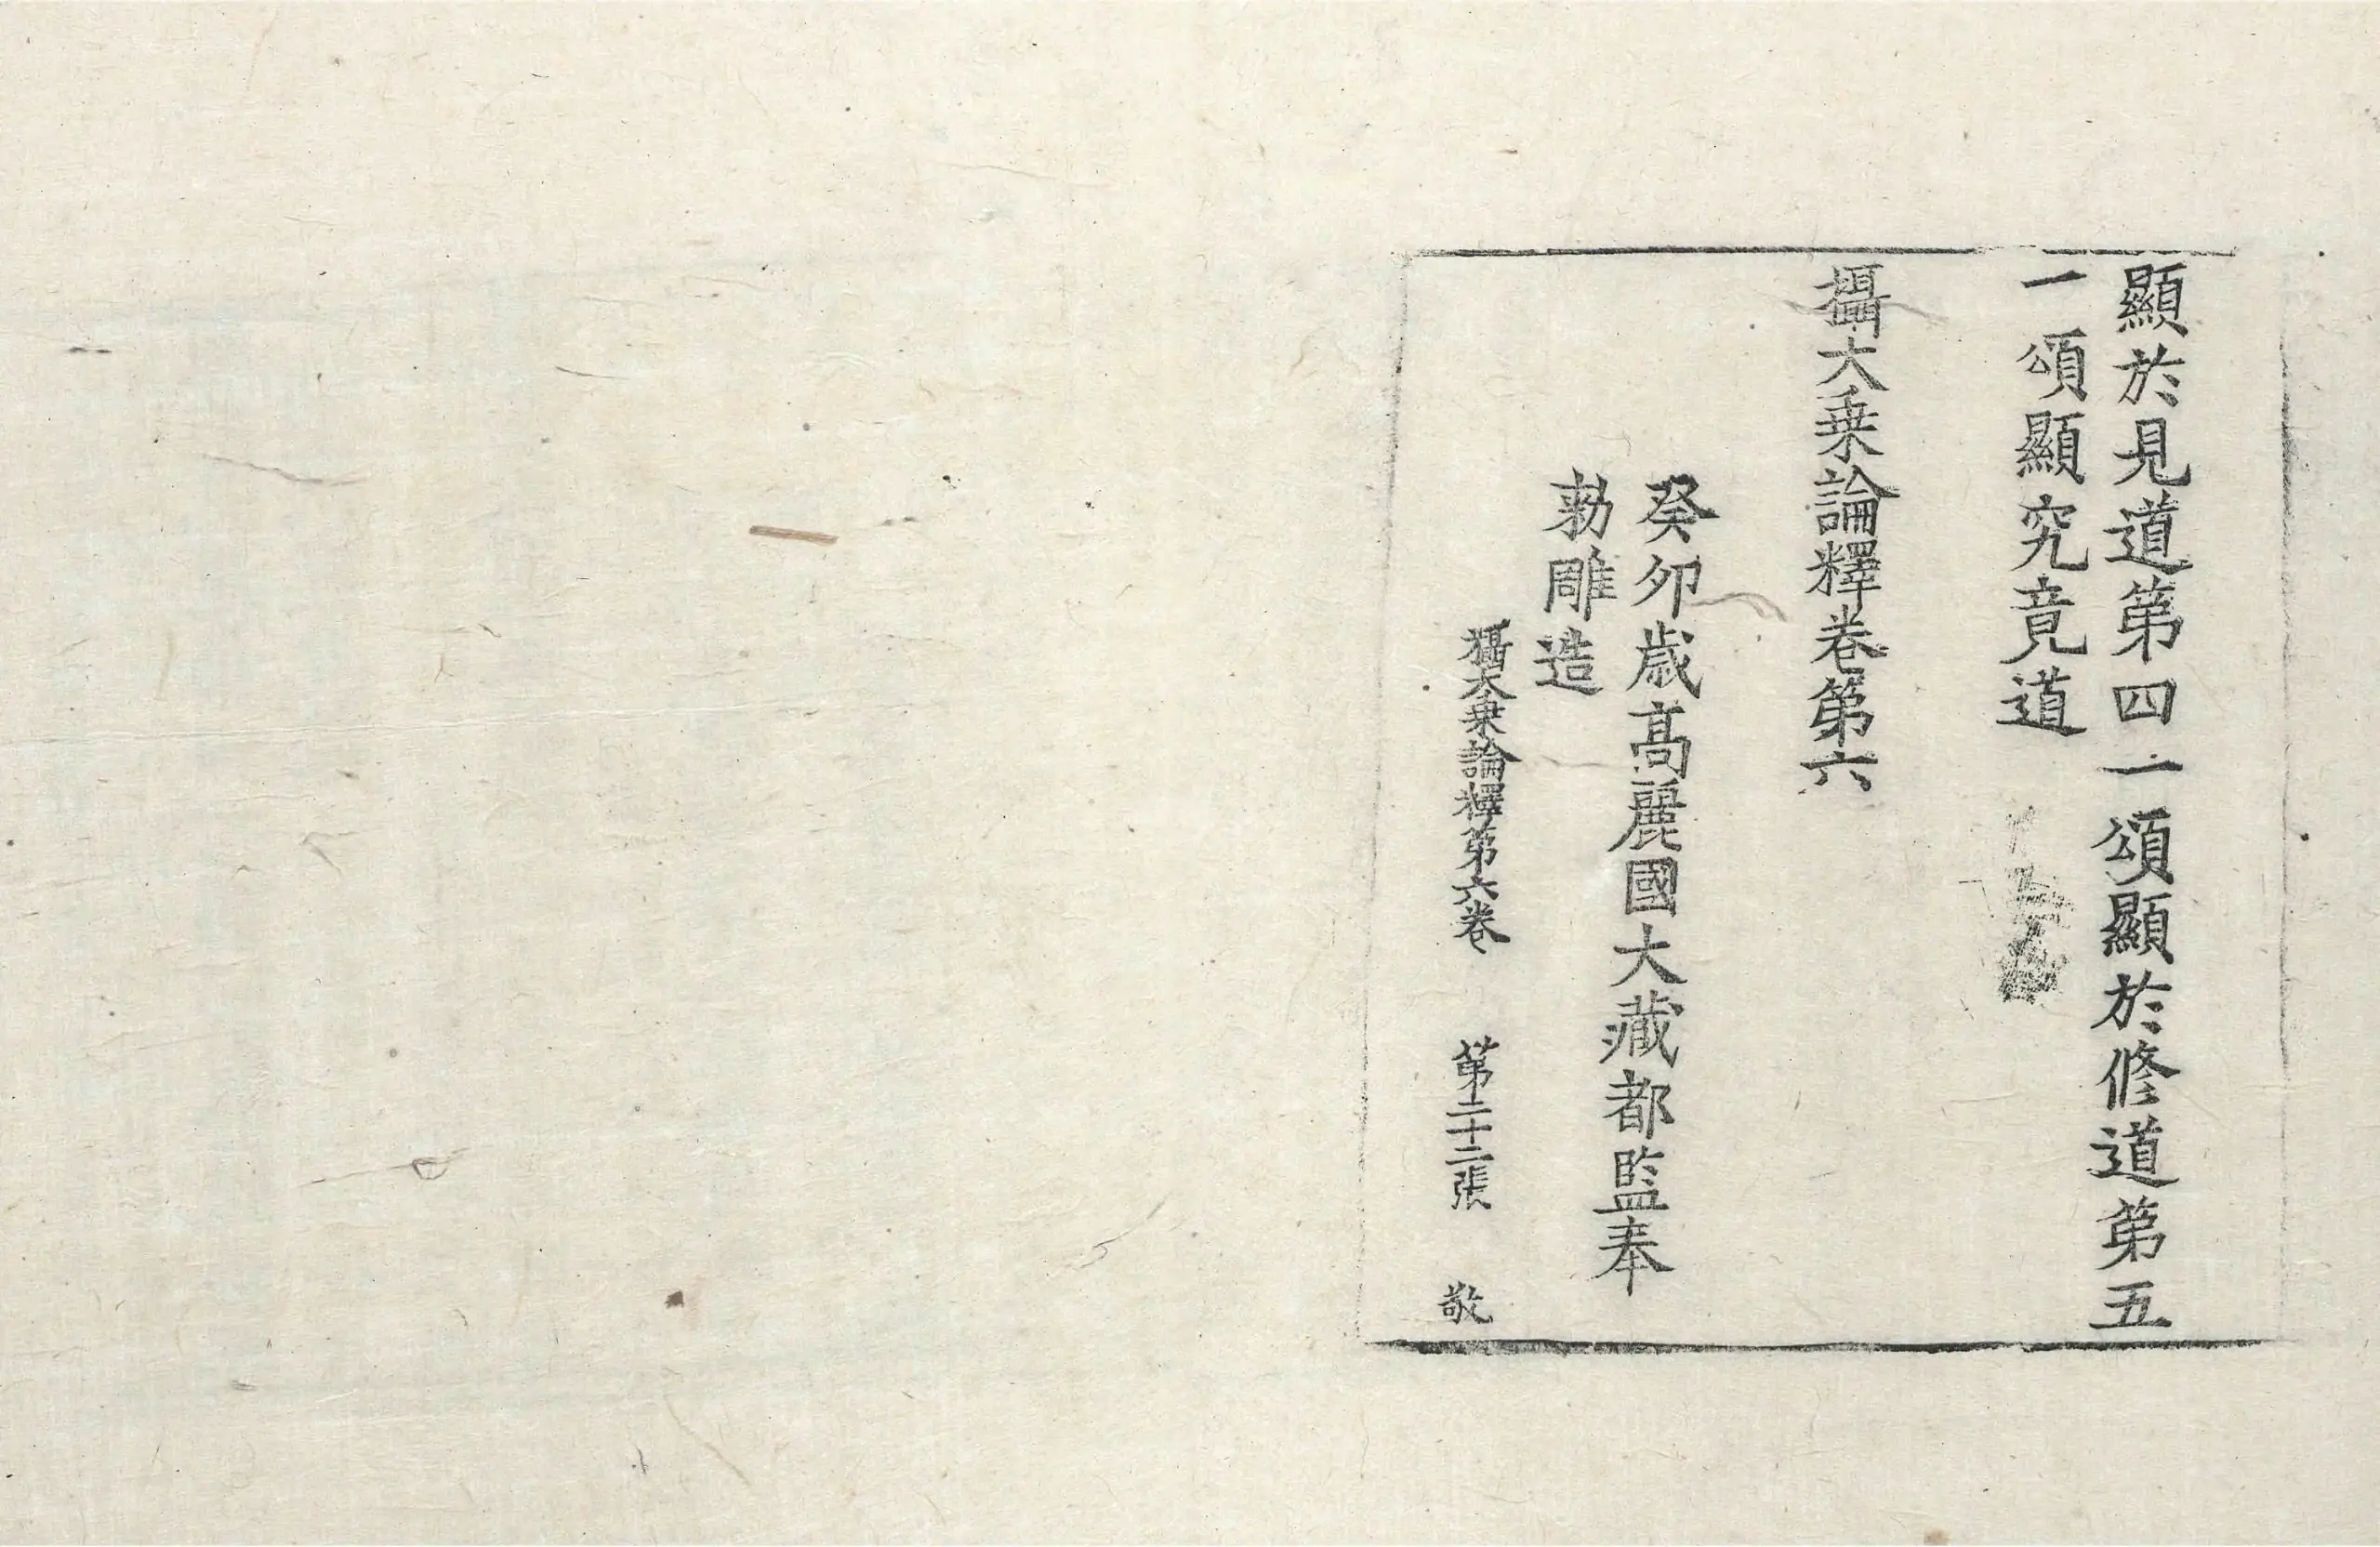 顯於見道第四一頌顯於修道第五
一頌顯究竟道
攝大乗論釋卷第六
癸卯歲高麗國大藏都監奉
勅雕造
攝大乗論釋第六卷 第二十二張 敬